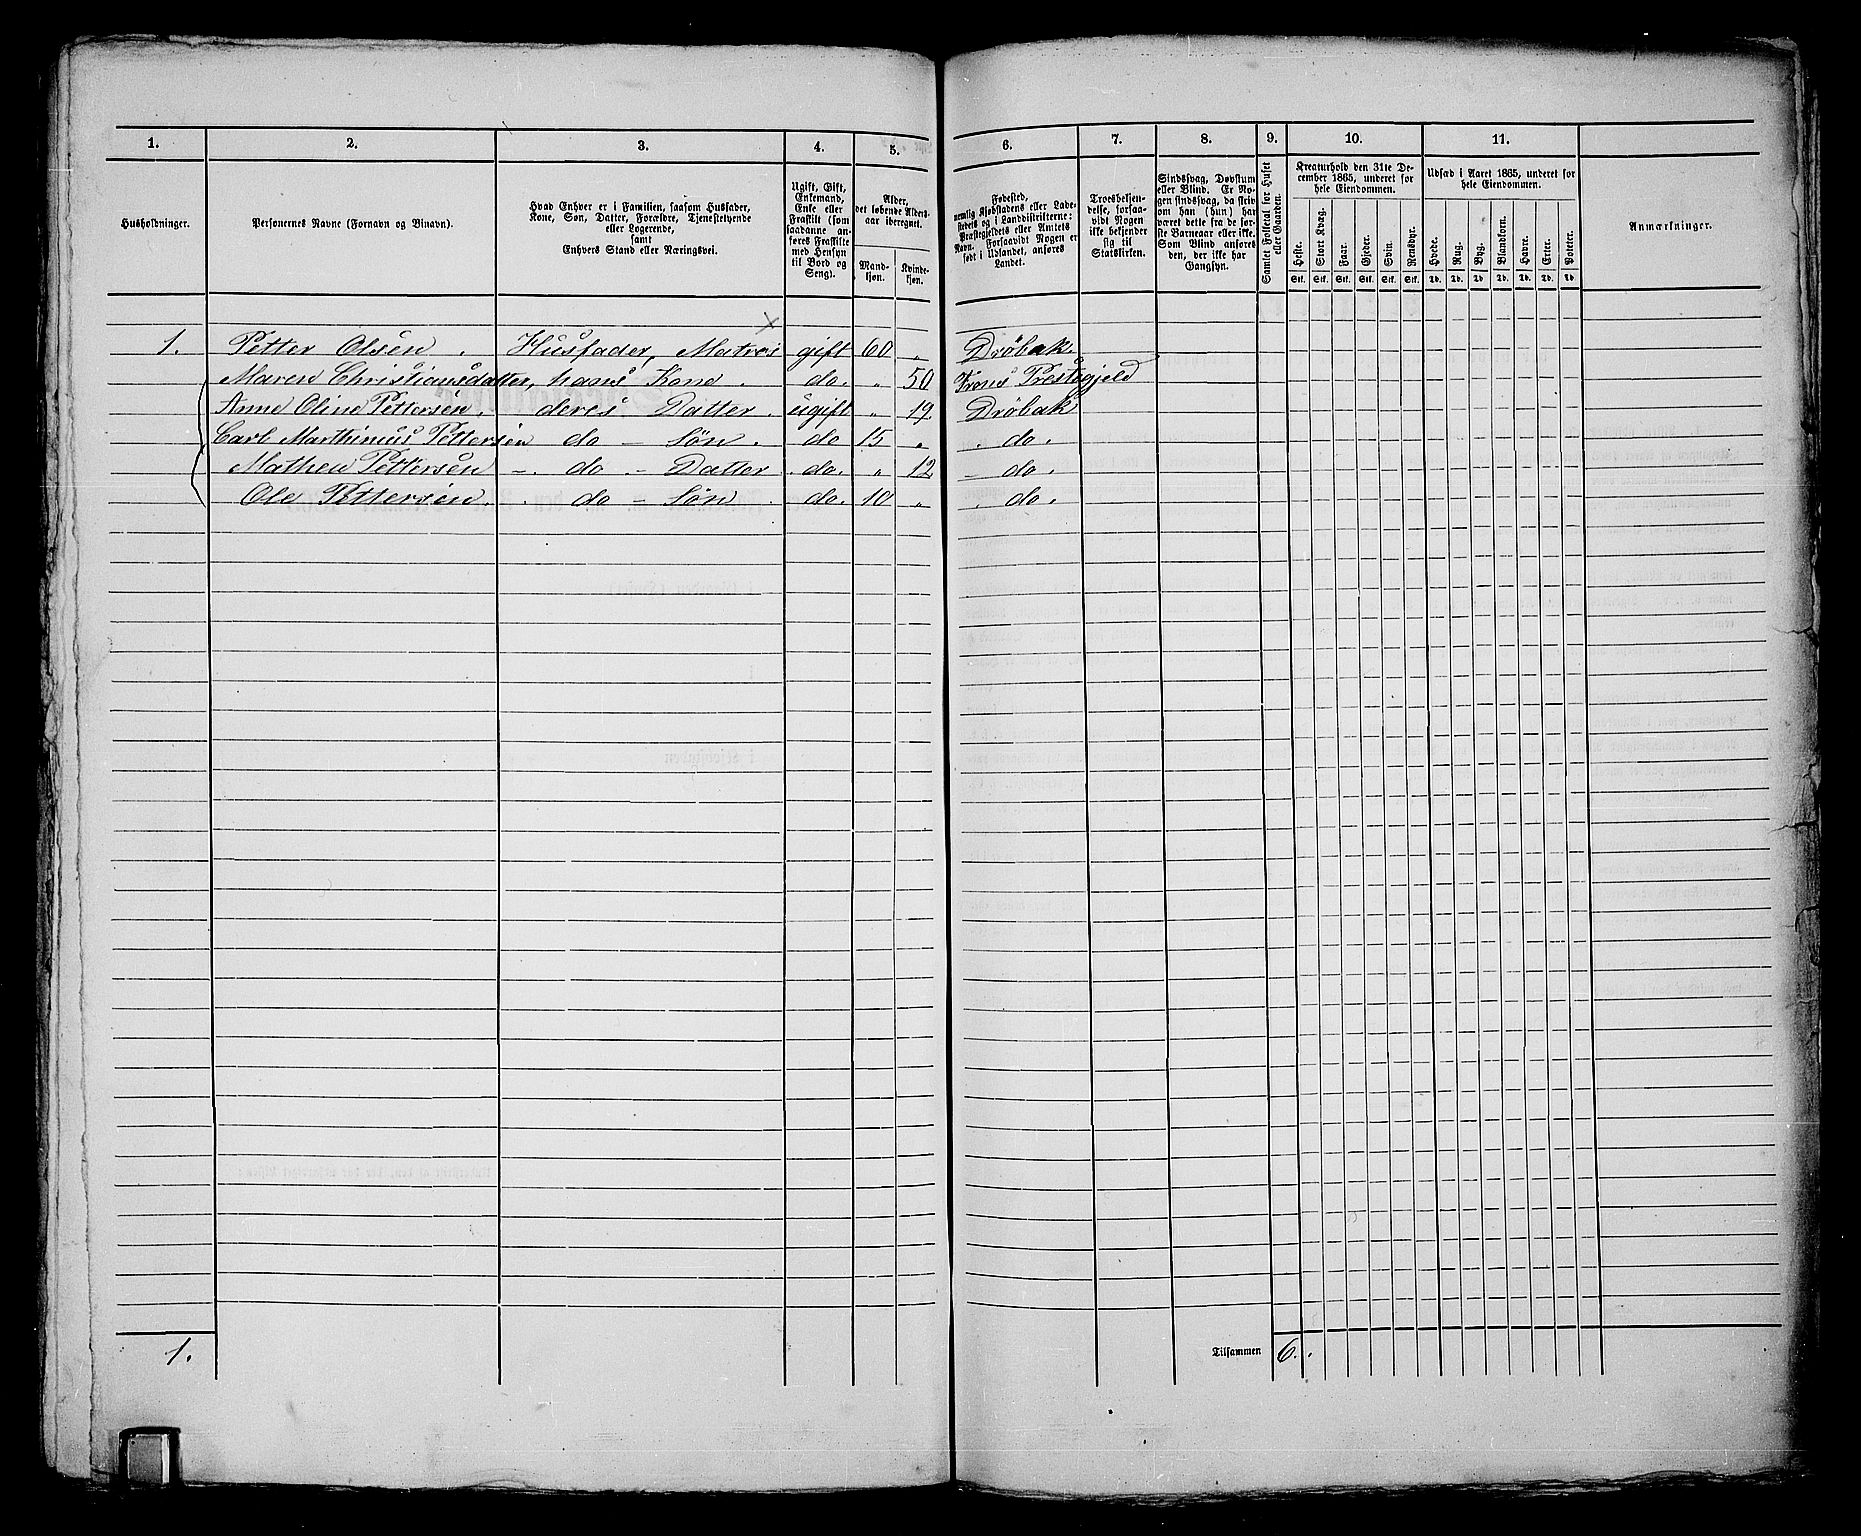 1. 2. 3. 4. 5. 6. 7. 8. 9. 10. 11.
Husholdninger.
Personernes Navne (Fornavn og Binavn).
Hvad Enhver er i Familien, saasom Husfader,
Kone, Søn, Datter, Forældre, Tjenestetyende
eller Logerende,
samt
Enhvers Stand eller Næringsvei.
Ugift, Gift,
Enkemand,
Enke eller
Fraskilt (som
saadanne an-
føres Fraskilte
med Hensyn
til Bord og
Seng).
Alder,
det løbende Alders-
aar iberegnet.
Mand-
kjøn.
Kvinde-
kjøn.
Fødested,
nemlig Kjøbstadens eller Lade-
stedets og i Landdistrikterne:
Præstegjeldets eller Amtets
Navn. Forsaavidt Nogen er
født i Udlandet, anføres
Landet.
Troesbekjen-
delse, forsaa-
vidt Nogen
ikke bekjender
sig til
Statskirken.
Sindssvag, Døvstum
eller Blind. Er No-
gen sindssvag, da skriv
om han (hun) har
været dette fra de før-
ste Barneaar eller ikke.
Som Blind anføres
den, der ikke har
Gangsyn.
Samlet Folketal for Huset
eller Gaarden.
Kreaturhold den 31te De-
cember 1865, underet for
hele Eiendommen.
Heste. Stort Kvæg. Faar. Gjeder. Svin. Rensdyr.
Stk. Stk. Stk. Stk. Stk. Stk.
Udsæd i Aaret 1865, underet for
hele Eiendommen.
Hvede. Rug. Byg. Blandkorn. Havre. Erter. Poteter.
Td. Td. Td. Td. Td. Td. Td.
Anmærkninger.
1. Petter Olsen . Husfader, Matros gift 60 „ Drøbak.
Maren Christiansdatter, hans Kone . do. „ 50 Krons Prestegjeld
Anne Oline Pettersen . deres Datter . ugift „ 19. Drøbak
Carl Marthinius Pettersen do – Søn . do 15 „ . do .
Mathea Pettersen – . do – Datter . do. „ 12 – do .
Ole Pettersen . . do – Søn . do. 10 „ . do .
1. Tilsammen 6.